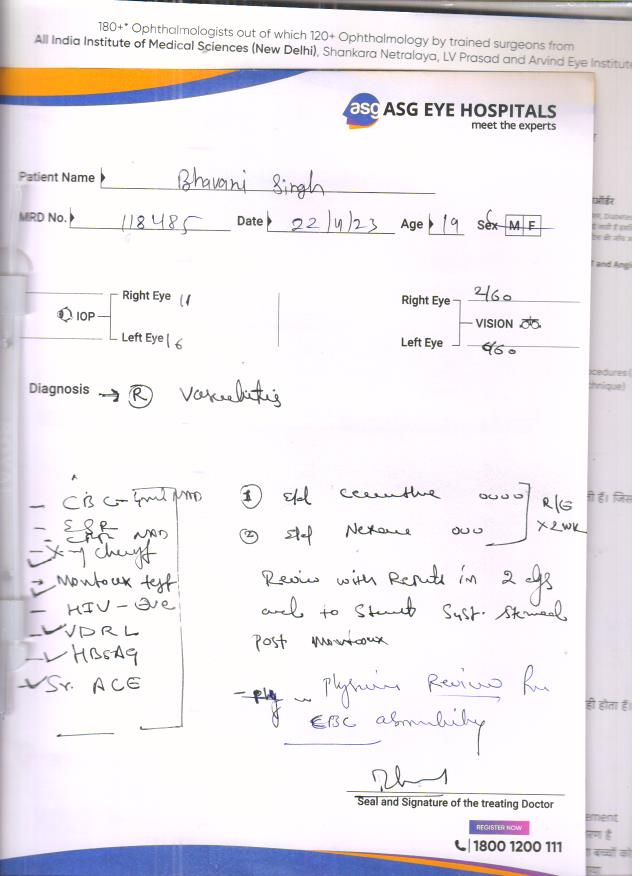 180+* Ophthalmologists out of which 120+ Ophthalmology by trained surgeons from
All India Institute of Medical Sciences (New Delhi), Shankara Netralaya, LV Prasad and Arvind Eye Institute
asg ASG EYE HOSPITALS
meet the experts
Patient Name Bhavani Singh
MRD No. 118485 Date 22/4/23 Age 19 Sex M F
IOP
Right Eye 11
Left Eye 16
Right Eye 2/60
VISION
Left Eye 6/60
Diagnosis → R Vasculitis
- CBC -
- ESR
X-ray chest
Montoux test
- HIV - -ve
VDRL
HBSAg
Sr. ACE
① e/d 0000
② e/d 000
R/E
x2wk
Review with Results in 2 dys
and to Start Syst. Steroid
post Montoux
- Physician Review for
CBC abnormality
Seal and Signature of the treating Doctor
REGISTER NOW
1800 1200 111